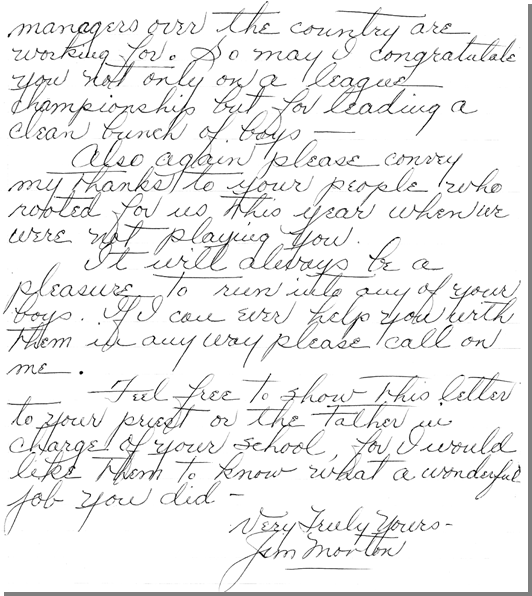 managers over the country are
working for. So may I congratulate
you not only on a league
championship but for leading a
clean bunch of boys —
Also again please convey
my thanks to your people who
rooted for us this year when we
were not playing you.
It will always be a
pleasure to run into any of your
boys. If I can ever help you with
them in any way please call on
me.
Feel free to show this letter
to your priest or the Father in
charge of your school, for I would
like them to know what a wonderful
job you did -
Very Truly Yours-
Jim Morton